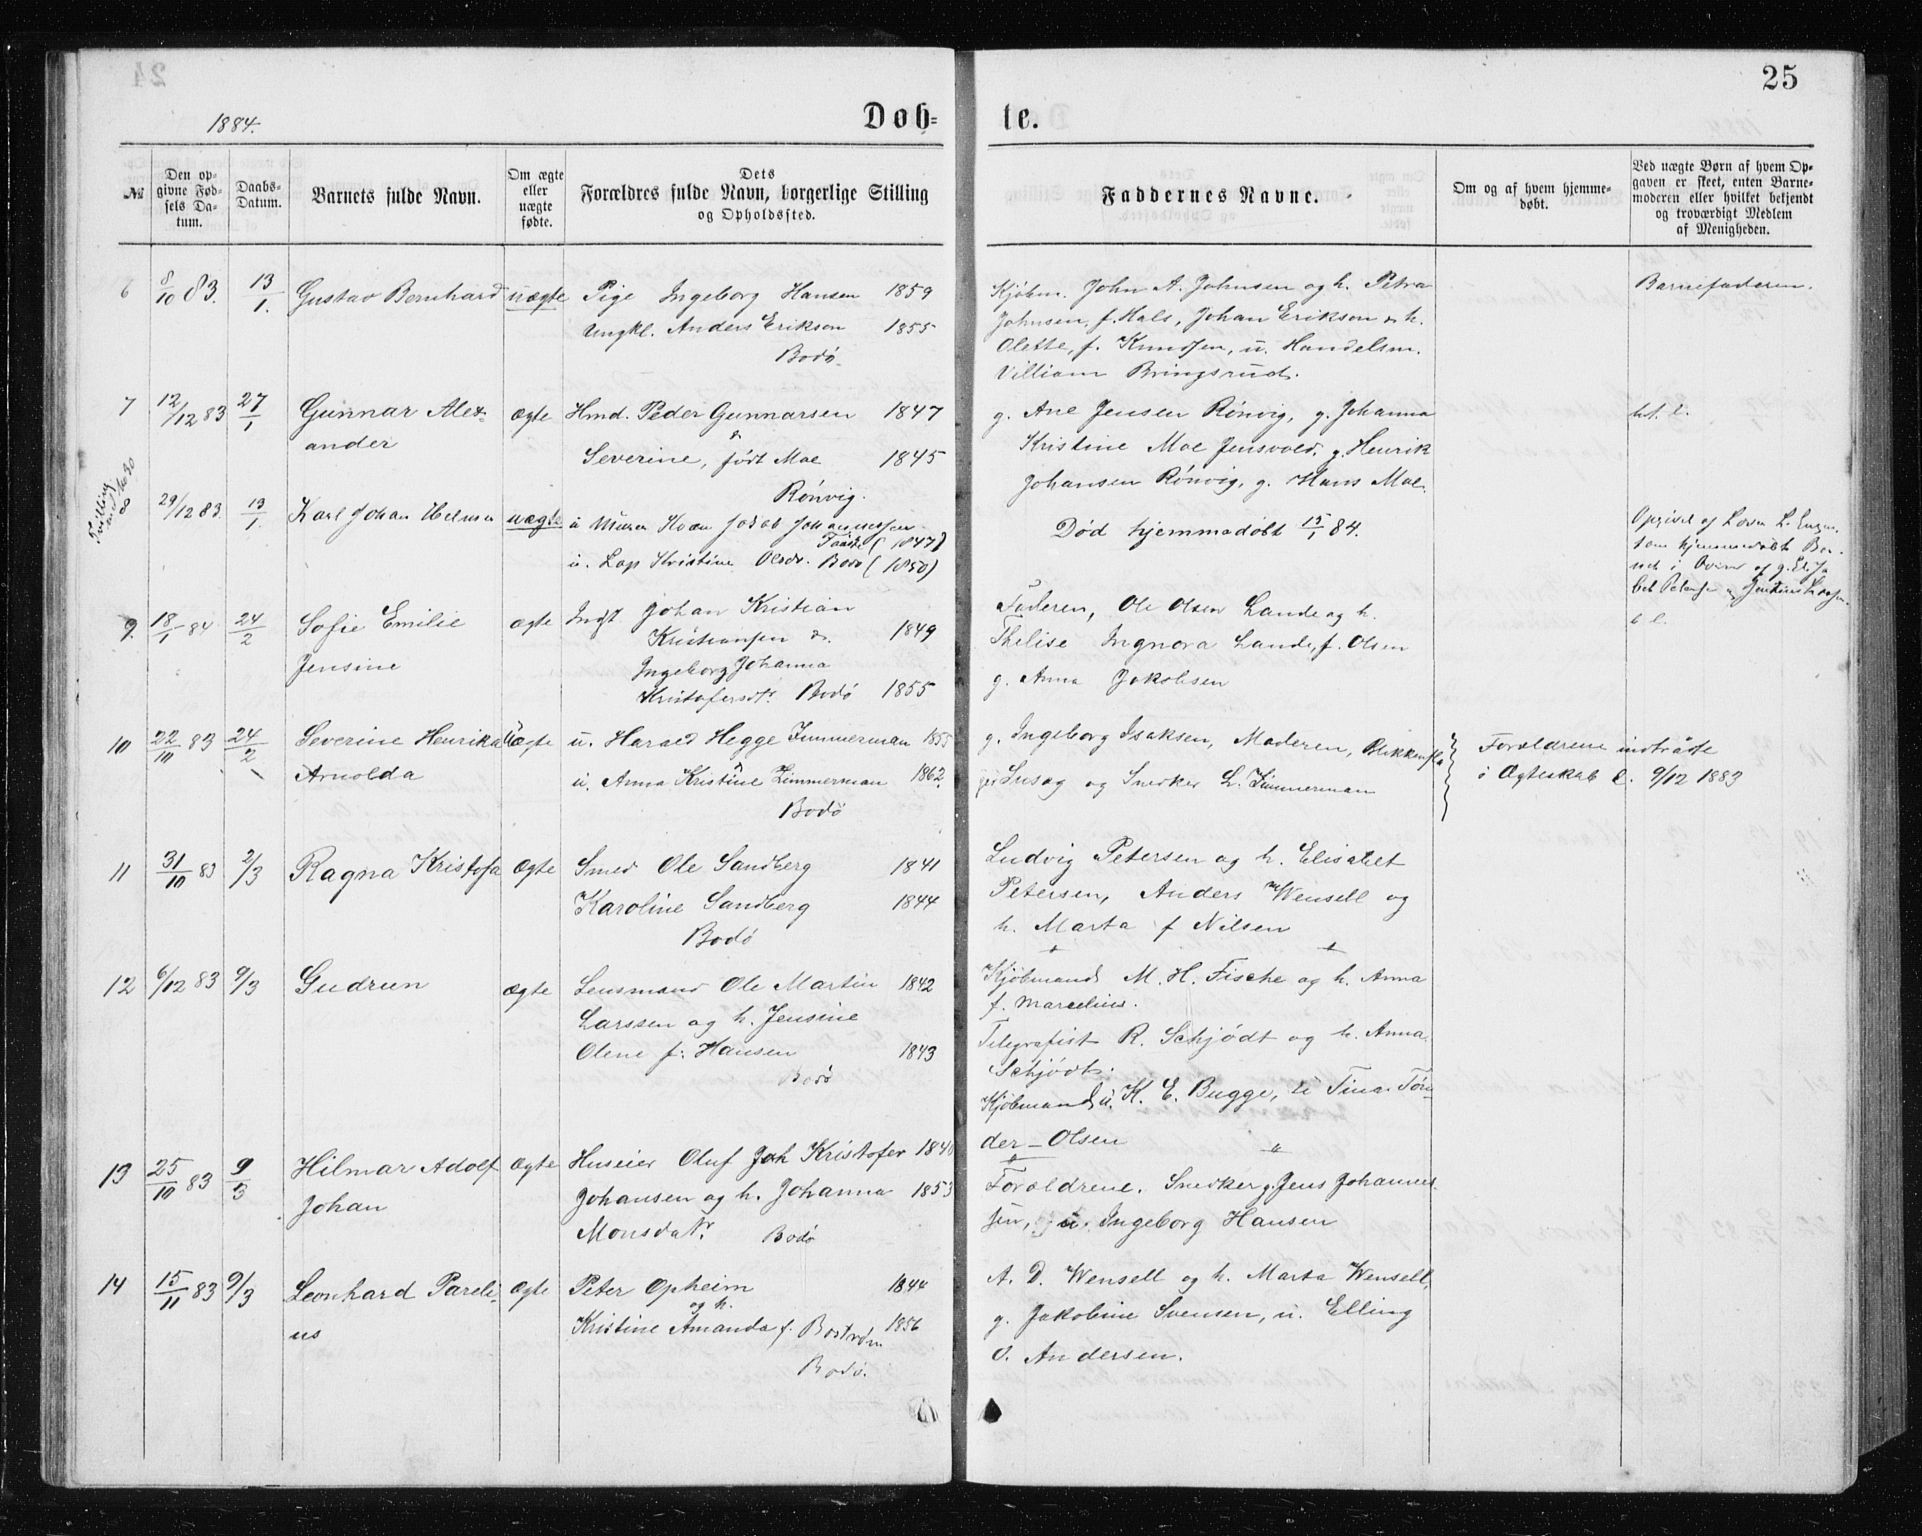 24
25
1884.
Døb=
te.
№
Den op-
givne Fød-
sels Da-
tum.
Daabs-
Datum.
Barnets fulde Navn.
Om ægte
eller
uægte
fødte.
Dets
Forældres fulde Navn, borgerlige Stilling
og Opholdssted.
Faddernes Navne.
Om og af hvem hjemme-
døbt.
Ved uægte Børn af hvem Op-
gaven er skeet, enten Barne-
moderen eller hvilket bekjendt
og troværdigt Medlem
af Menigheden.
6 8/10 83. 13/1. Gustav Bernhard uægte Pige Ingeborg Hansen 1859
Ungkl. Anders Erikson 1855
Bodø.
Kjøbm. John A. Johnsen og h. Petra
Johnsen, f. Hals, Johan Erikson & h.
Olette, f. Knudsen, u. Handelsm.
Villiam Bringsrud.
Barnefaderen.
7 12/12 83 27/1 Gunnar Alex- ægte Hmd. Peder Gunnarsen 1847
ander
&
Severine, født Moe 1845
Rønvig.
g. Ane Jensen Rønvig, g. Johanna
Kristine Moe Jensvold, g. Henrik
Johansen Rønvig, g. Hans Moe.
Tvilling
8
29/12 83. 13/1. Karl Johan uægte
Død hjemmedøbt 15/1 84.
(1847)
u. Kristine Olsdr. Bodø (1850)
9. 18/1 84 24/2 Sofie Emilie ægte Indst Johan Kristian
Jensine
Kristiansen & 1849
Ingeborg Johanna
Kristofersdtr. Bodø 1855
Faderen, Ole Olsen Lande og h.
Thelise Ingnora Lande, f. Olsen
g. Anna Jakobsen
10 22/10 83 24/2 Severine Henrika Uægte u. Harald Hegge Zimmerman 1855
Arnolda
u. Anna Kristine Zimmerman 1862.
Bodø
g. Ingeborg Isaksen, Moderen, Blikkensla
ger og Snedker L. Zimmerman
Forældrene indtrådte
i Ægteskab 9/12 1883
11 31/10 83 2/3 Ragna Kristofa Ægte Smed Ole Sandberg 1841
Karoline Sandberg 1844
Bodø
Ludvig Petersen og h. Elisabet
Petersen, Anders Wensell og
h. Marta f Nilsen
12 6/12 83 9/3 Gudrun ægte Lensmand Ole Martin 1842
Larssen og h. Jensine
Olene f. Hansen 1843
Bodø
Kjøbmand M. H. Fische og h. Anna
f. Marcelius.
Telegrafist R. Schjødt og h. Anna
Schjødt.
Kjøbmand u. K. E. Bugge, u Tina Tøn-
der-Olsen
13 25/10 83 9/3 Hilmar Adolf Ægte Huseier Oluf Joh Kristofer 1840
Johan
Johansen og h. Johanna 1853
Monsdatr. Bodø
Forældrene. Snedker g. Jens Johannes-
sen, u. Ingeborg Hansen
14 15/11 83 9/3 Leonhard Pareli- Ægte Peter Opheim 1844
us
og h.
Kristine Amanda f. Bostrøm 1856
Bodø.
A. D. Wensell og h. Marta Wensell,
g. Jakobine Svensen, u. Elling
O. Andersen.